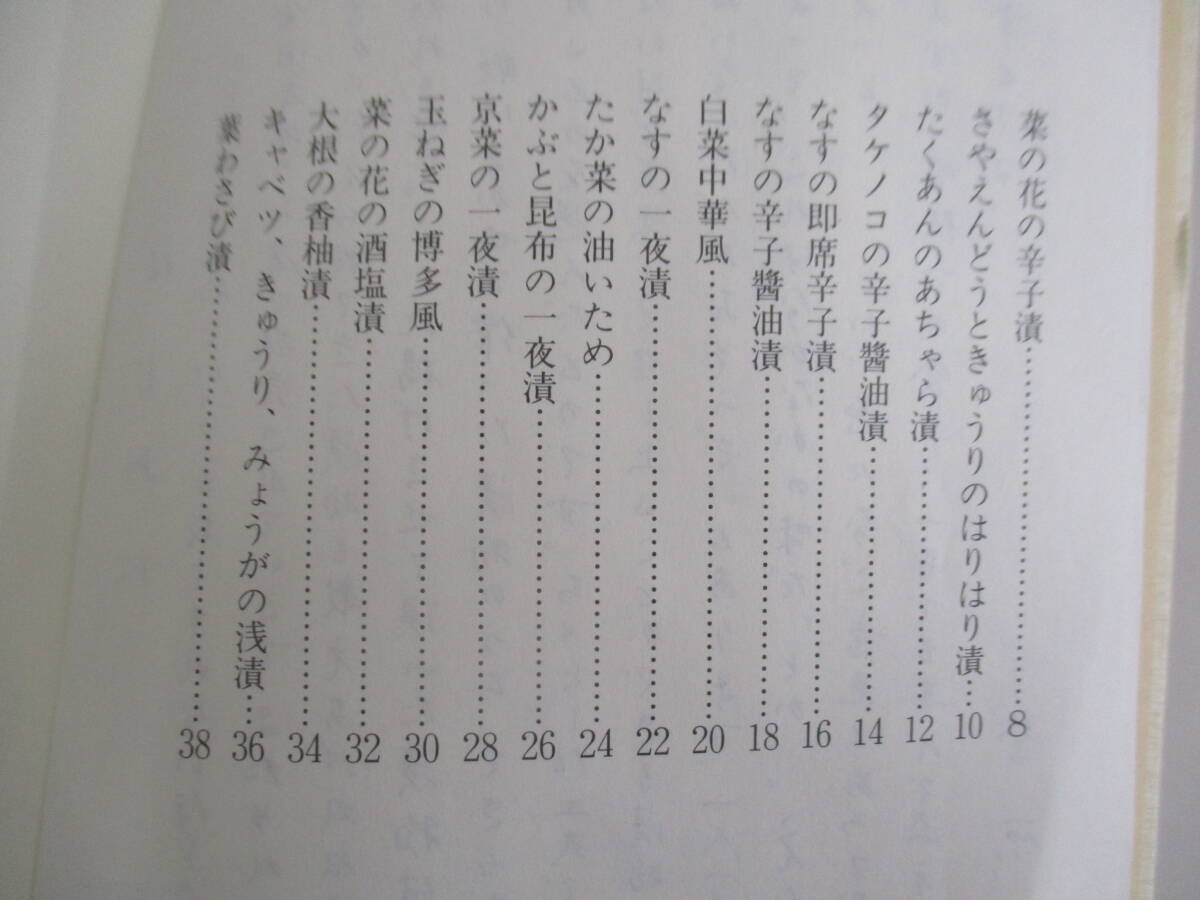 菜の花の辛子漬……8
さやえんどうときゅうりのはりはり漬…10
たくあんのあちゃら漬……12
タケノコの辛子醬油漬……14
なすの即席辛子漬……16
なすの辛子醬油漬……18
白菜中華風……20
なすの一夜漬……22
たか菜の油いため……24
かぶと昆布の一夜漬……26
京菜の一夜漬……28
玉ねぎの博多風……30
菜の花の酒塩漬……32
大根の香柚漬……34
キャベツ、きゅうり、みょうがの浅漬…36
葉わさび漬……38